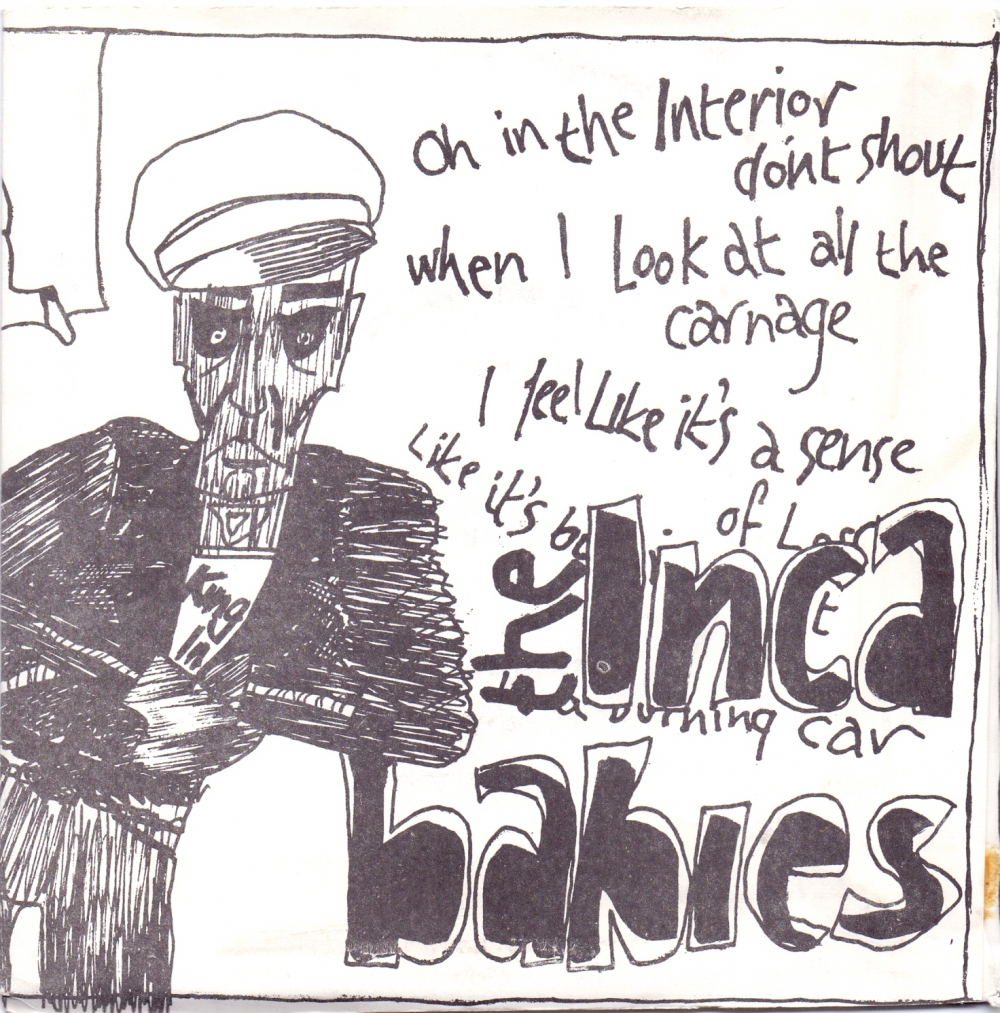 Oh in the Interior
don't shout
when I Look at all the
carnage
I feel Like it's a sense
Like it's
of
the Inca
a burning car
babies
King
In